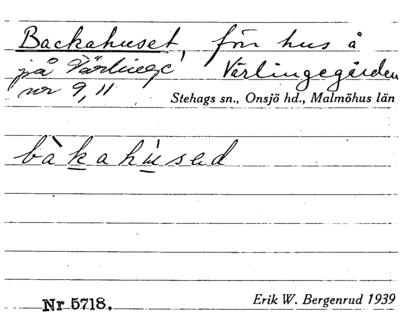 Backahuset, förr hus å
på Värlinge Värlingegården
nr 9, 11 Stehags sn., Onsjö hd., Malmöhus län
bàkahu̇sad
Nr 5718. Erik W. Bergenrud 1939